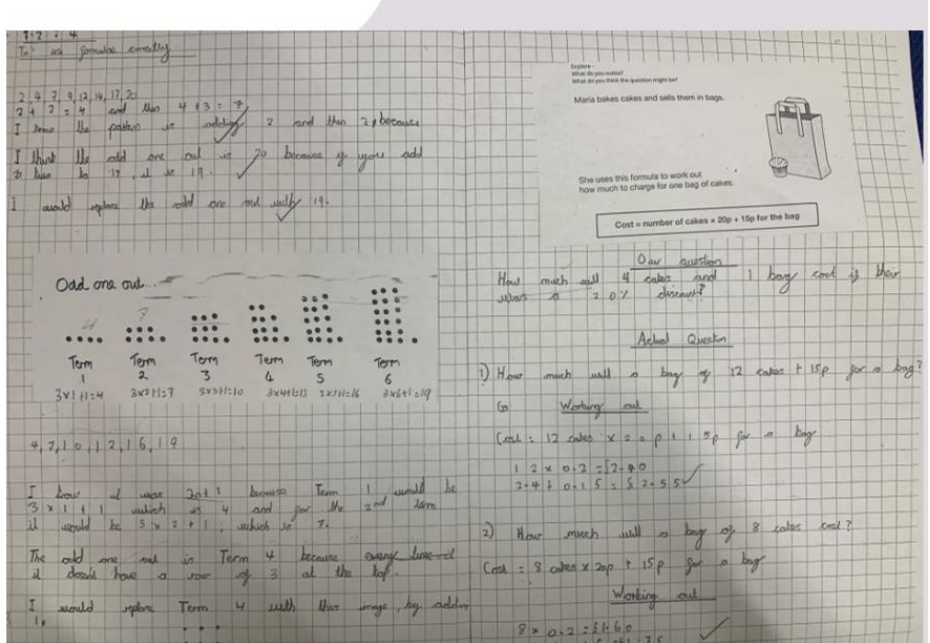 To use formulae correctly
2, 4, 7, 9, 12, 14, 17, 20
2 + 2 = 4 and then 4 + 3 = 7,
I know the pattern is adding 2 and then 3, because
I think the odd one out is 20 because if you add
2 to 17, it is 19.
I would replace the odd one out with 19.
Odd one out...
4 7
Term Term Term Term Term Term
1 2 3 4 5 6
3x1+1=4 3x2+1=7 3x3+1=10 3x4+1=13 3x6+1=19
4, 7, 10, 12, 16, 19
I know it was because Term 1 would be
3 x 1 + 1 which is 4 and for the 2nd term
it would be 3 x 2 + 1, which is 7.
The odd one out is Term 4 because
it doesn't have a row of 3 at the top.
I would replace Term 4 with this image, by adding
1.
Explore -
What do you notice?
What do you think the question might be?
Maria bakes cakes and sells them in bags.
She uses this formula to work out
how much to charge for one bag of cakes.
Cost = number of cakes × 20p + 15p for the bag
Our question
How much will 4 cakes and 1 bag cost if their
was a 20% discount?
Actual Question
1) How much will a bag of 12 cakes + 15p for a bag?
Working out
Cost = 12 cakes x 20p + 15p for a bag
12 x 0.2 = £2.40
2.4 + 0.15 = £2.55
2) How much will a bag of 8 cakes cost?
Cost = 8 cakes x 20p + 15p for a bag
Working out
8 x 0.2 = £1.60